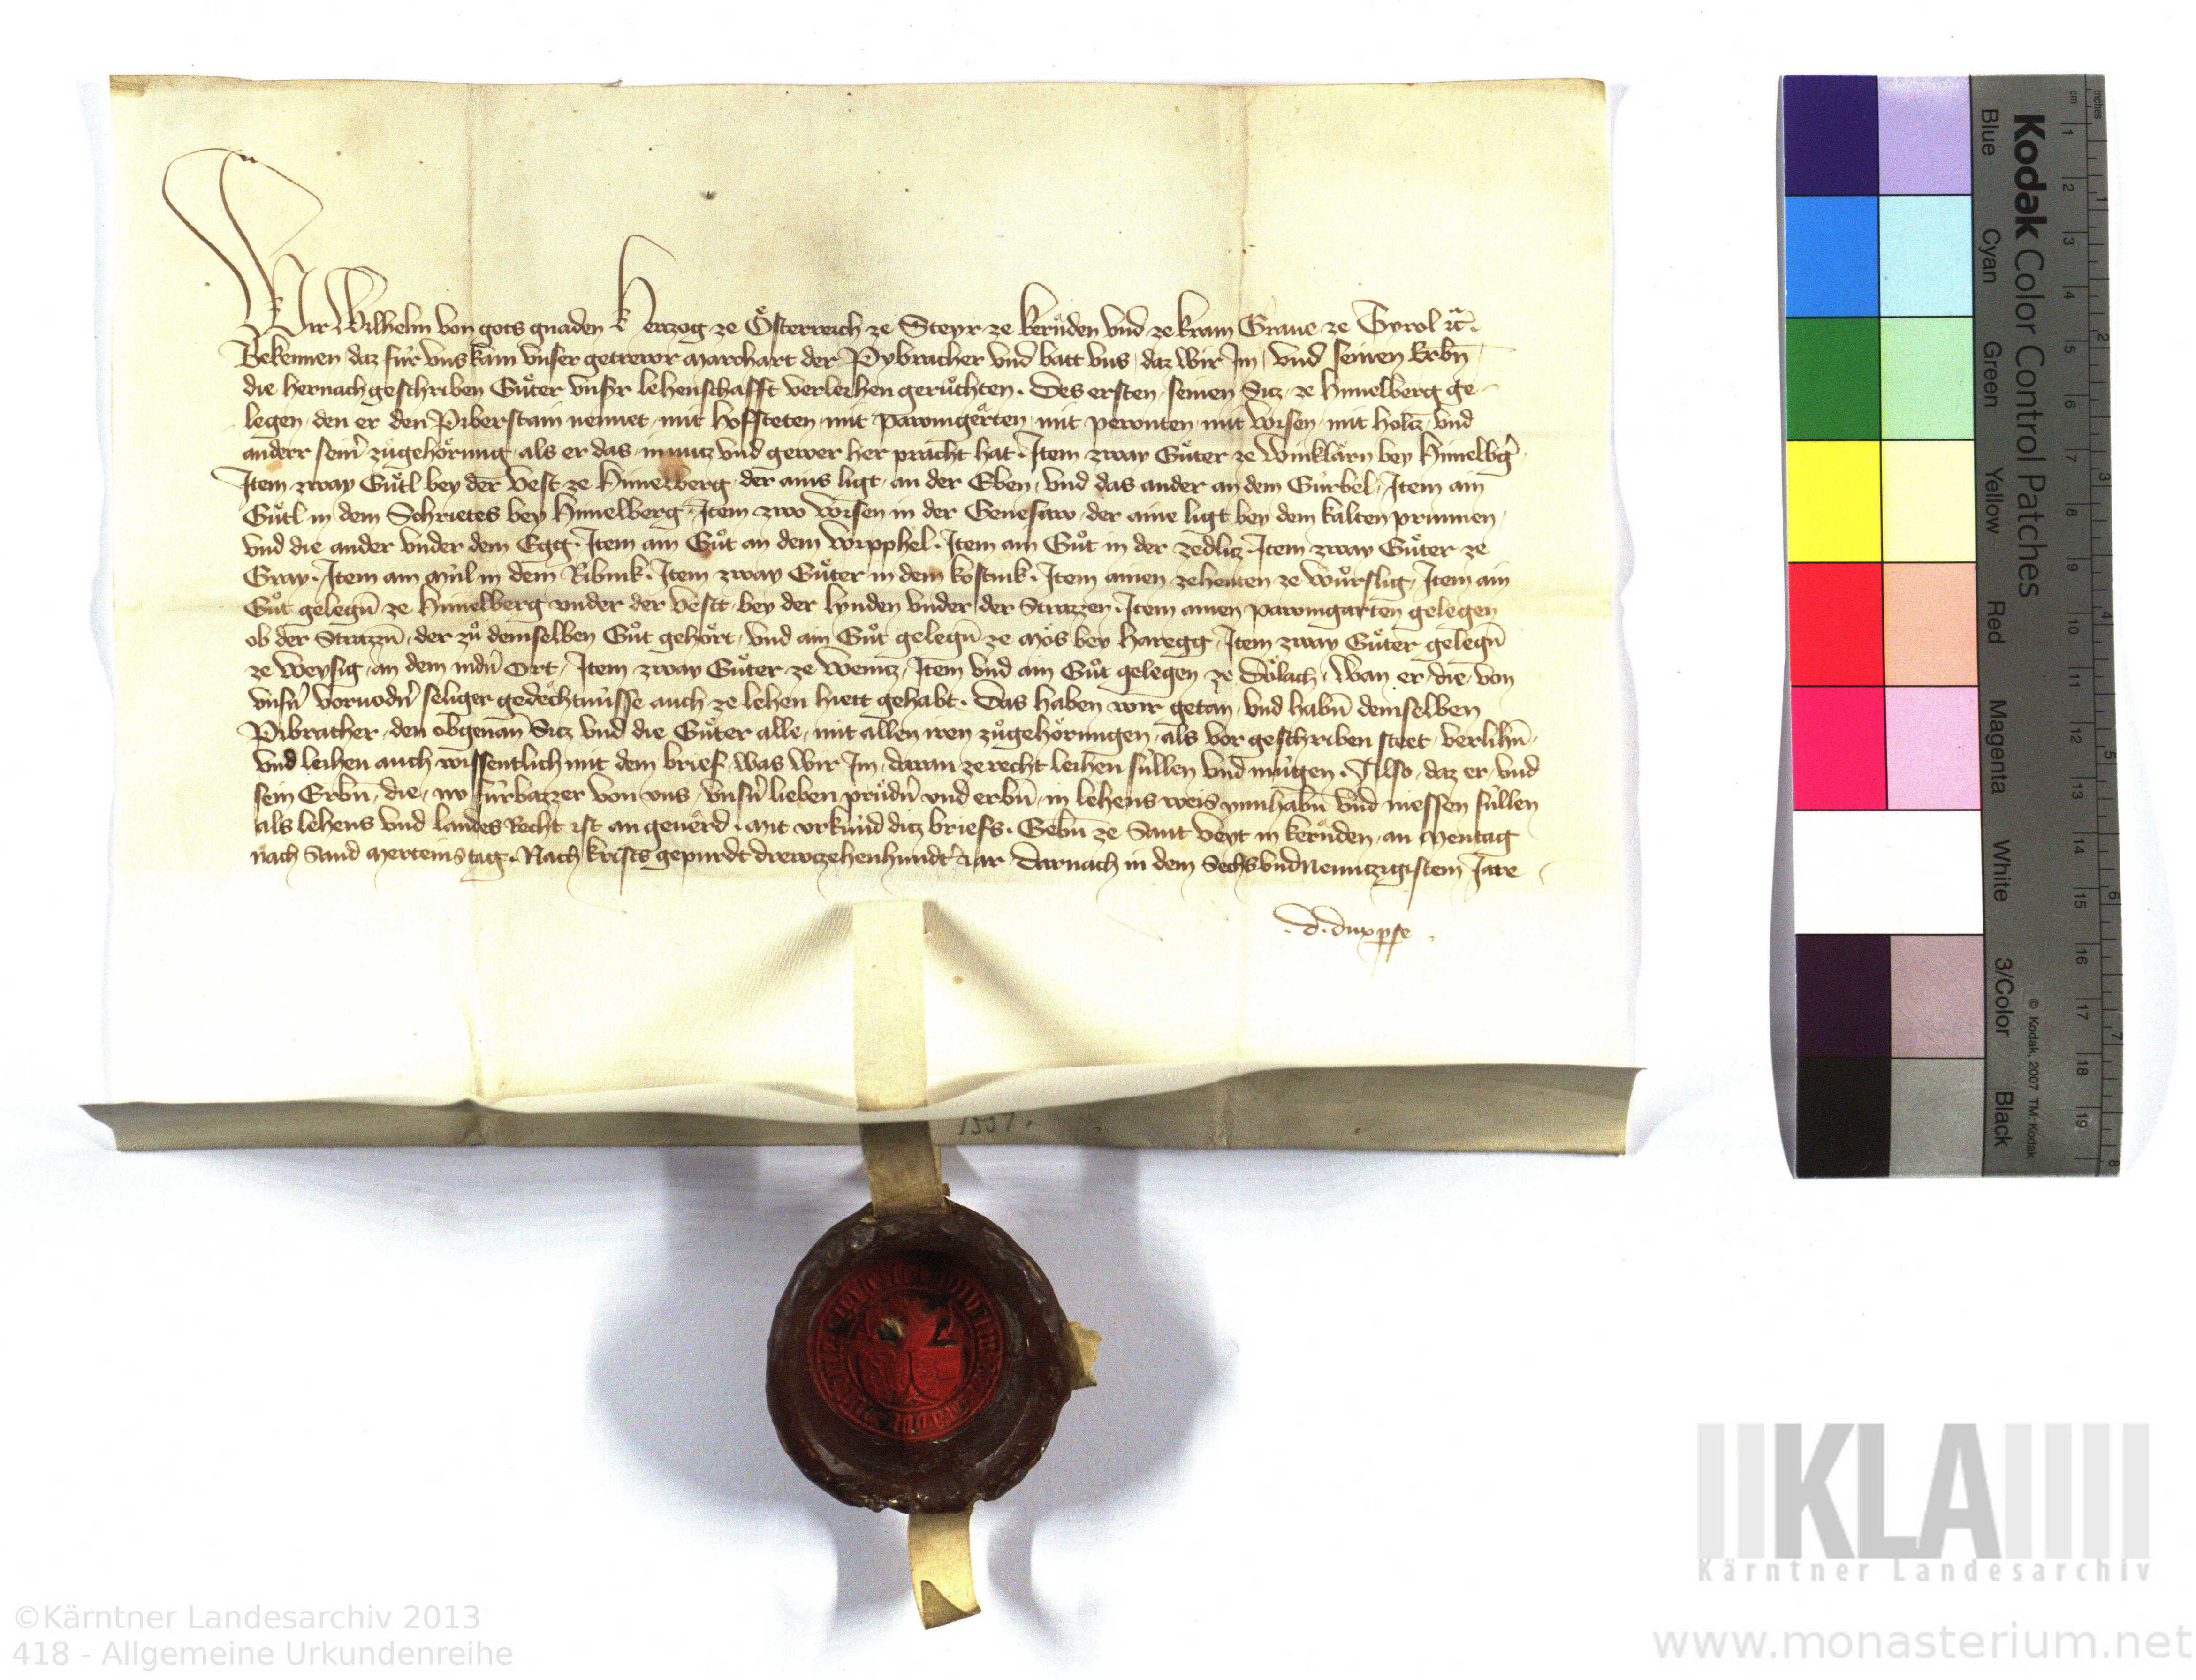 Wir Wilhelm von gots gnaden Hertzog ze Österreich ze Steyr ze kernden vnd ze krain Graue ze Tyrol ꝛc̃.
Bekennen daz für vns kam vnser getrewr Marchart der Pybracher vnd batt vns daz wir Im vnd seinen Erbn̄
die hernachgeschriben Güter vnsr lehenschafft verleihen gerůchten. Des ersten seinen Sitz ze Himelberg ge-
legen den er den Piberstain nennet mit hofsteten mit pawmgerten mit pewnten mit wisen mit holtz vnd
anderr seinr̄ zůgehörung als er das in nutz vnd gewer her pracht hat. Item zway Gůter ze Winklärn bey Himelbg̃
Item zway Gůtl bey der vest ze Himelberg der ains ligt an der Eben vnd das ander an dem Gürbel. Item ain
Gůtl in dem Schrietes bey Himelberg. Item zwo wisen in der Genesaw der aine ligt bey dem kalten prunnen
vnd die ander vnder dem Egg. Item ain Gůt an dem wipphel. Item ain Gůt in der zedlitz. Item zway Gůter ze
Gray. Item ain Mül in dem Ribnik. Item zway Gůter in dem kostnik. Item ainen zehenten ze würslig. Item ain
Gůt gelegn̄ ze Himelberg vnder der vestt bey der lynden vnder der Strazzen. Item ainen pawmgarten gelegen
ob der Strazzn̄ der zů demselben Gůt gehört vnd ain Gůt gelegn̄ ze Mös bey haregg. Item zway Gůter gelegn̄
ze weysig an dem nidn̄ Ort. Item zway Gůter ze wenitz. Item vnd ain Gůt gelegen ze Dölach. Wan er die von
vnsn̄ vornodn̄ seliger gedechtnüsse auch ze lehen hiett gehabt. Das haben wir getan vnd habn̄ demselben
Pibracher den obgenan̄ Sitz vnd die Gůter alle mit allen iren zůgehörungen als vor geschriben steet verlihn̄
vnd leihen auch wissentlich mit dem brief was wir Im daran ze recht leihen süllen vnd mügen. Also daz er vnd
sein Erbn̄ die nv fürbazzer von vns vnsn̄ lieben prüdn̄ vnd erbn̄ in lehens weis innhabn̄ vnd niessen süllen
als lehens vnd landes Recht ist an geuerd. Mit vrkund ditz briefs. Gebn̄ ze Sant veyt in kernden an Mentag
nach Sand Merteins tag. Nach krists gepurdt drewtzehenhundt̃ iar Darnach in dem Sechsvndnewntzigistem Jare
.d. dux p se.
Kodak Color Control Patches
Blue Cyan Green Yellow Red Magenta White 3/Color Black
© Kodak, 2007 TM: Kodak
cm 1 2 3 4 5 6 7 8 9 10 11 12 13 14 15 16 17 18 19
inches 1 2 3 4 5 6 7 8
KLA
Kärntner Landesarchiv
©Kärntner Landesarchiv 2013
418 - Allgemeine Urkundenreihe
www.monasterium.net